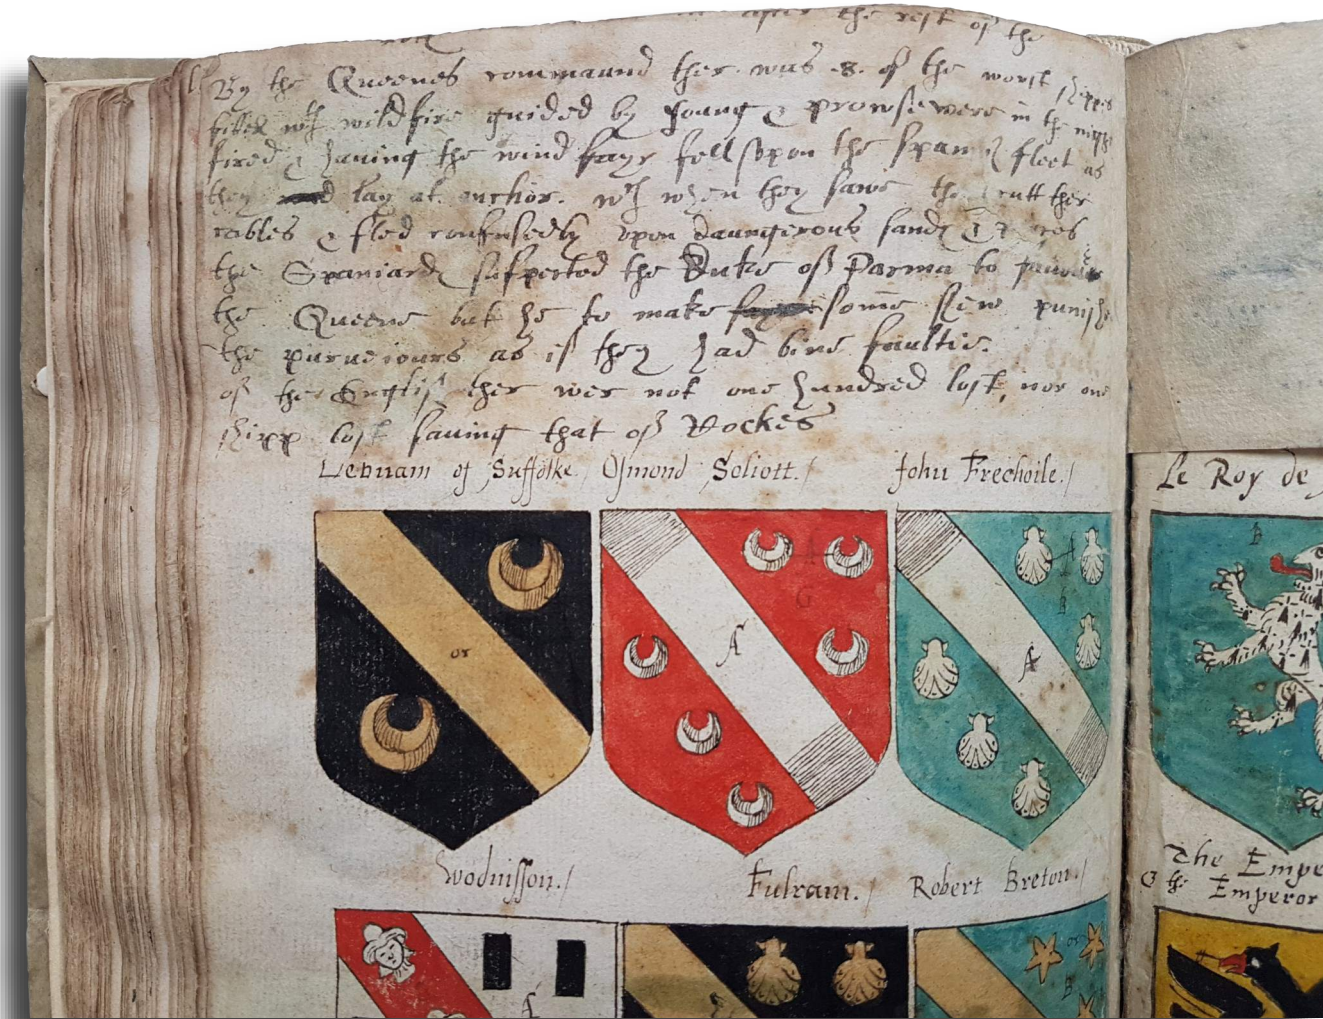 after the rest of the
By the Queenes commaund ther was .8. of the worst shipps
filled wth wildfire guided by Young & Prowse were in the night
fired & having the wind fayr fell upon the Span fleet as
they lay at anchor. wch when they sawe the cutt ther
cables & fled confusedly upon daungerous sands &
the Spaniards suspected the Duke of Parma to
the Queene but he to make some shew punishd
the purveiours as if they had bine faultie.
of the English ther wer not one hundred lost, nor one
shipp lost saving that of Cockes
of Suffolke. Osmond Soliott./ John Frechoile./
or A A B G A
Wodnisson./ Fulram./ Robert Breton./
A or B
Le Roy de
B
The Empe
the Emperor